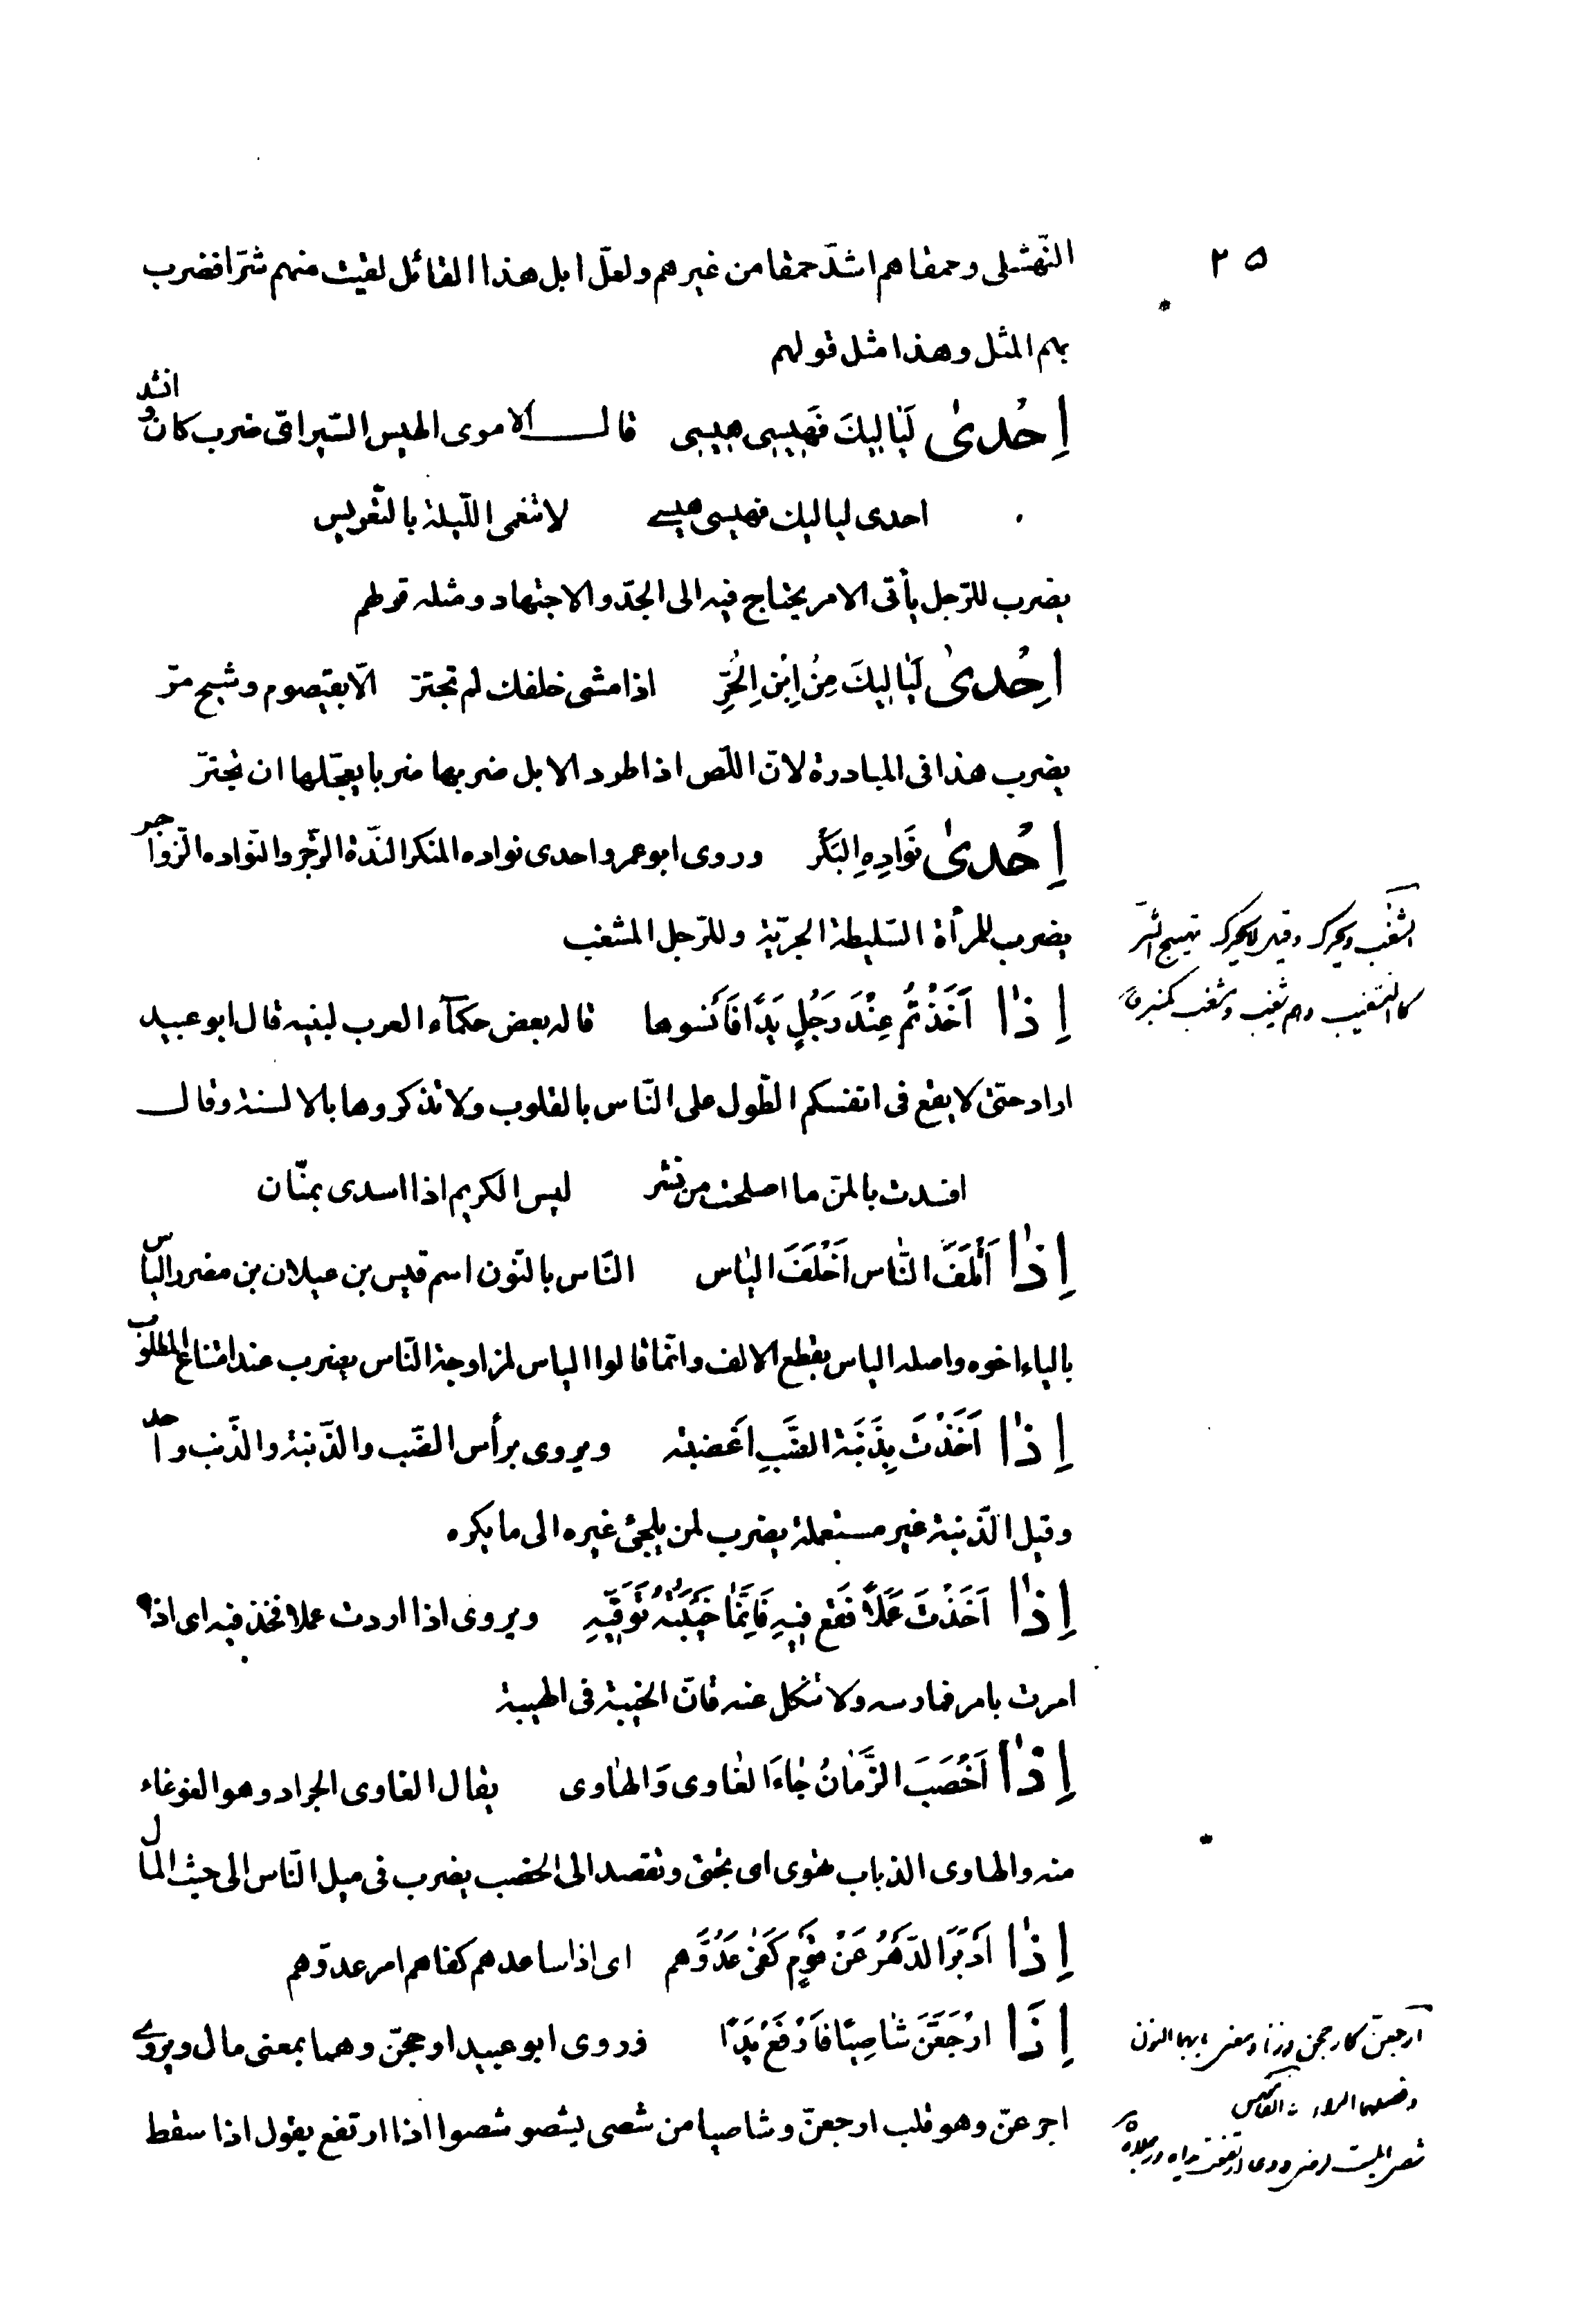 ٢٥
النّهشلى وحمقاهم اشدّ حمقا من غيرهم ولعلّ ابل هذا القائل لقيت منهم شرّا فضرب
بهم المثل وهذا مثل قولهم
اِحْدىٰ لَيَاليكَ فَهيسِى هيسِى قال الاموى الهيس السّير اىّ ضرب كان وانشد
احدى لياليك فهيسى هيسے لا تنعمى الليلة بالتّعريس
يضرب للرّجل يأتى الامر يحتاج فيه الى الجدّ والاجتهاد ومثله قولهم
اِحْدىٰ لَيَاليكَ مِنْ اِبْن اِلحُرِّ اذا مشى خلفك لم تجترّ الّا بقيصوم وشيح مرّ
يضرب هذا فى المبادرة لانّ اللّص اذا طرد الابل ضربها ضربا يعجّلها ان تجترّ
اِحْدىٰ نَوَادِهِ البَكْر وروى ابو عمرو احدى نواده المنكر النّدة الزّجر والنّواده الزّواجر
يضرب للمرأة السّليطة الجريّة وللرّجل المشغب
الشغب ويحرك وقيل لا يحرك تهييج الشّر
كالتشغيب
اِذٰا اَخَذْتُمْ عِنْدَ رَجُلٍ يَدًا فَانْسوها قاله بعض حكمآء العرب لبنيه قال ابو عبيد
اراد حتىٰ لا يقع فى انفسكم الطّول على النّاس بالقلوب ولا تذكروها بالالسنة وقال
افسدت بالمنّ ما اصلحت من نشر ليس الكريم اذا اسدى بمنّان
اِذٰا اَتْلَفَ النّٰاس اَخْلَفَ اليٰاس النّاس بالنّون اسم قيس بن عيلان بن مضر والياس
بالياء اخوه واصله الياس بقطع الالف وانّما قالوا الياس لمزاوجة النّاس يضرب عند امتناع المطلوب
اِذٰا اَخَذْتَ بِذَنَبَة الضَّبِ اَغْضبته ويروى برأس الضّب والذّنبة والذّنب واحد
وقيل الذّنبة غير مستعملة يضرب لمن يلجئ غيره الى ما يكره
اِذٰا اَخَذْتَ عَمَلًا فَقَع فيهِ فَاِنَّمٰا خَيْبَتُهُ تَوَقّيهِ ويروى اذا اردت عملا فخذ فيه اى اذا
امرت بامر فمارسه ولا تنكل عنه فانّ الخيبة فى الهيبة
اِذٰا اَخْصَبَ الزَّمٰانُ جٰاءَ الغٰاوى وَالهٰاوى يقال الغاوى الجراد وهو الغوغاء
منه والهاوى الذباب تهوى اى تجئ وتقصد الى الخصب يضرب فى ميل النّاس الى حيث المال
اِذٰا اَدْبَرَ الدَّهْرُ عَنْ قَوْمٍ كَفىٰ عَدُوَّهم اى اذا ساعدهم كفاهم امر عدوّهم
اِذَا ارْجَعَنَّ شٰاصِيًا فَارْفَعْ يَدًا وروى ابو عبيد ارجحنّ وهما بمعنى مال ويروے
ارجعنّ كارجحن وزنا ومعنى
اجرعنّ وهو قلب ارجعنّ وشاصيا من شصى يشصو شصوا اذا ارتفع يقول اذا سقط